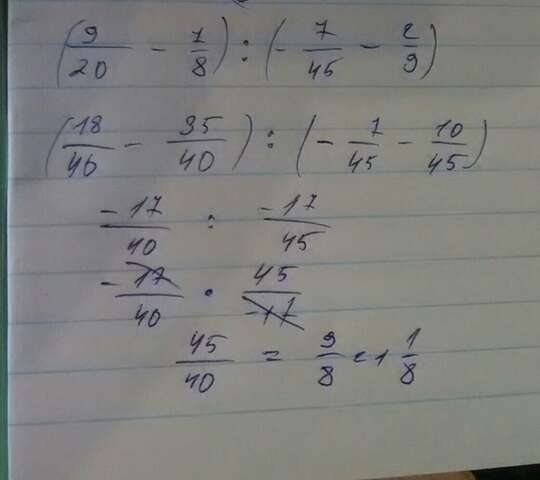 (9/20 - 7/8) : (- 7/45 - 2/9)
(18/40 - 35/40) : (- 7/45 - 10/45)
-17/40 : -17/45
-17/40 · 45/-17
45/40 = 9/8 = 1 1/8